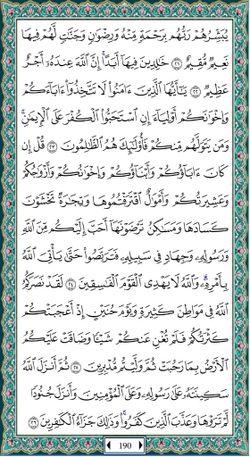 يُبَشِّرُهُمْ رَبُّهُم بِرَحْمَةٍ مِّنْهُ وَرِضْوَٰنٍ وَجَنَّٰتٍ لَّهُمْ فِيهَا
نَعِيمٌ مُّقِيمٌ ٢١ خَٰلِدِينَ فِيهَآ أَبَدًا إِنَّ ٱللَّهَ عِندَهُۥٓ أَجْرٌ
عَظِيمٌ ٢٢ يَٰٓأَيُّهَا ٱلَّذِينَ ءَامَنُوا۟ لَا تَتَّخِذُوٓا۟ ءَابَآءَكُمْ
وَإِخْوَٰنَكُمْ أَوْلِيَآءَ إِنِ ٱسْتَحَبُّوا۟ ٱلْكُفْرَ عَلَى ٱلْإِيمَٰنِ
وَمَن يَتَوَلَّهُم مِّنكُمْ فَأُو۟لَٰٓئِكَ هُمُ ٱلظَّٰلِمُونَ ٢٣ قُلْ إِن
كَانَ ءَابَآؤُكُمْ وَأَبْنَآؤُكُمْ وَإِخْوَٰنُكُمْ وَأَزْوَٰجُكُمْ
وَعَشِيرَتُكُمْ وَأَمْوَٰلٌ ٱقْتَرَفْتُمُوهَا وَتِجَٰرَةٌ تَخْشَوْنَ
كَسَادَهَا وَمَسَٰكِنُ تَرْضَوْنَهَآ أَحَبَّ إِلَيْكُم مِّنَ ٱللَّهِ
وَرَسُولِهِۦ وَجِهَادٍ فِى سَبِيلِهِۦ فَتَرَبَّصُوا۟ حَتَّىٰ يَأْتِىَ ٱللَّهُ
بِأَمْرِهِۦ وَٱللَّهُ لَا يَهْدِى ٱلْقَوْمَ ٱلْفَٰسِقِينَ ٢٤ لَقَدْ نَصَرَكُمُ
ٱللَّهُ فِى مَوَاطِنَ كَثِيرَةٍ وَيَوْمَ حُنَيْنٍ إِذْ أَعْجَبَتْكُمْ
كَثْرَتُكُمْ فَلَمْ تُغْنِ عَنكُمْ شَيْـًٔا وَضَاقَتْ عَلَيْكُمُ
ٱلْأَرْضُ بِمَا رَحُبَتْ ثُمَّ وَلَّيْتُم مُّدْبِرِينَ ٢٥ ثُمَّ أَنزَلَ ٱللَّهُ
سَكِينَتَهُۥ عَلَىٰ رَسُولِهِۦ وَعَلَى ٱلْمُؤْمِنِينَ وَأَنزَلَ جُنُودًا
لَّمْ تَرَوْهَا وَعَذَّبَ ٱلَّذِينَ كَفَرُوا۟ وَذَٰلِكَ جَزَآءُ ٱلْكَٰفِرِينَ ٢٦
190